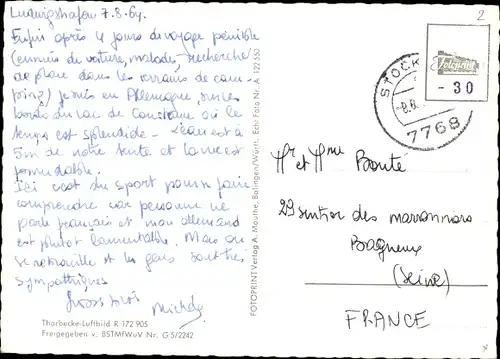 Ludwigshafen 7.8.64.
Enfin après 4 jours de voyage pénible
(ennuis de voiture, malade, recherche
de place dans les terrains de cam-
ping) je suis en Allemagne sur les
bords du lac de Constance où le
temps est splendide - l'eau est à
5m de notre tente et la vie est
formidable.
Ici c'est du sport pour se faire
comprendre car personne ne
parle français et mon allemand
est plutôt lamentable. Mais on
se débrouille et les gens sont très
sympathiques
Gross bises
Michèle
Thorbecke-Luftbild R 172 905
Freigegeben v. BSTMfWuV Nr. G 5/2242
FOTOPRINT Verlag A. Mauthe, Balingen/Württ. Echt Foto Nr. A 122 550
2
Fotoprint
- 30
STOCK
-8.8.
7768
Mr et Mme Bonté
29 sentier des marronniers
Bagneux
(Seine)
FRANCE